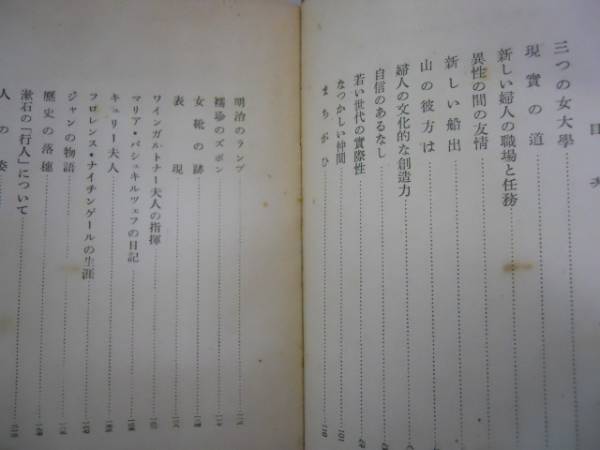 目次
三つの女大學
現實の道
新しい婦人の職場と任務
異性の間の友情
新しい船出
山の彼方は
婦人の文化的な創造力
自信のあるなし
若い世代の實際性
なつかしい仲間 101
まちがひ 110
明治のランプ
繻珍のズボン
女靴の跡
表現
ワインガルトナー夫人の指揮
マリア・バシュキルツェフの日記
キュリー夫人
フロレンス・ナイチンゲールの生涯
ジャンの物語
歴史の落穗
漱石の「行人」について
人の姿